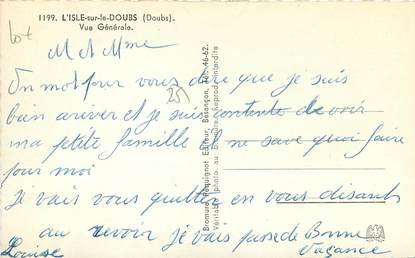 1199. L'ISLE-sur-le-DOUBS (Doubs).
Vue Générale.
lot
M et Mme
Un mot pour vous dire que je suis
bien ariver et je suis contente de voir
ma petite famille il ne save quoi faire
pour moi
Je vais vous quitter en vous disant
au revoir je vais passe de Bonne
Vacance
Louise
25
Bromure Péquignot Editeur, Besançon, Tél. 46-62.
Véritable photo. au Bromure. Reprod. interdite